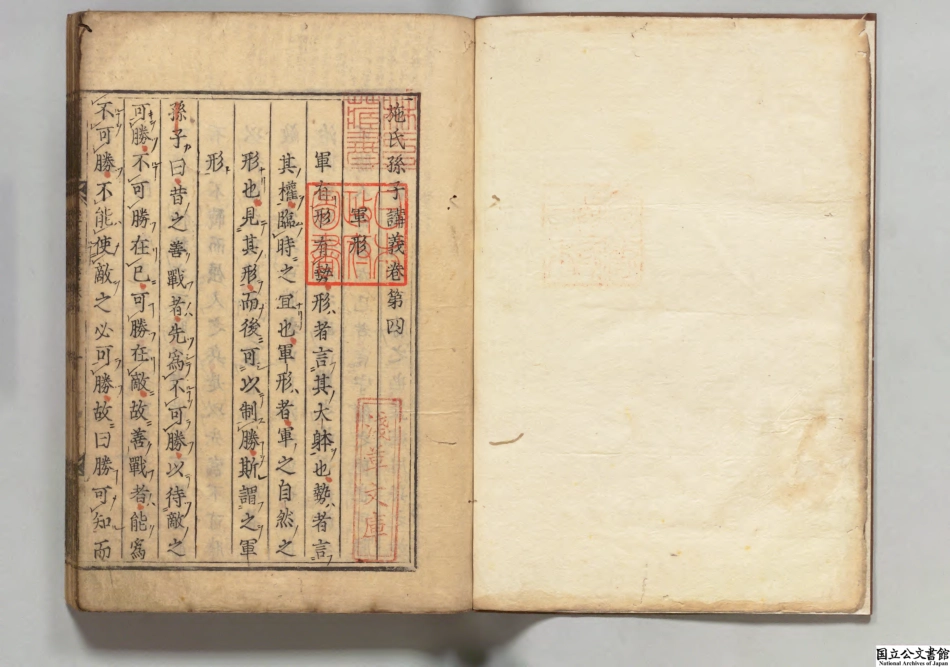 施氏孫子講義卷第四
軍形
軍有形有勢形者言其大躰也勢者言
其權臨時之冝也軍形者軍之自然之
形也見其形而後可以制勝斯謂之軍
形
孫子曰昔之善戰者先爲不可勝以待敵之
可勝不可勝在已可勝在敵故善戰者能爲
不可勝不能使敵之必可勝故曰勝可知而
淺草文庫
国立公文書館
National Archives of Japan